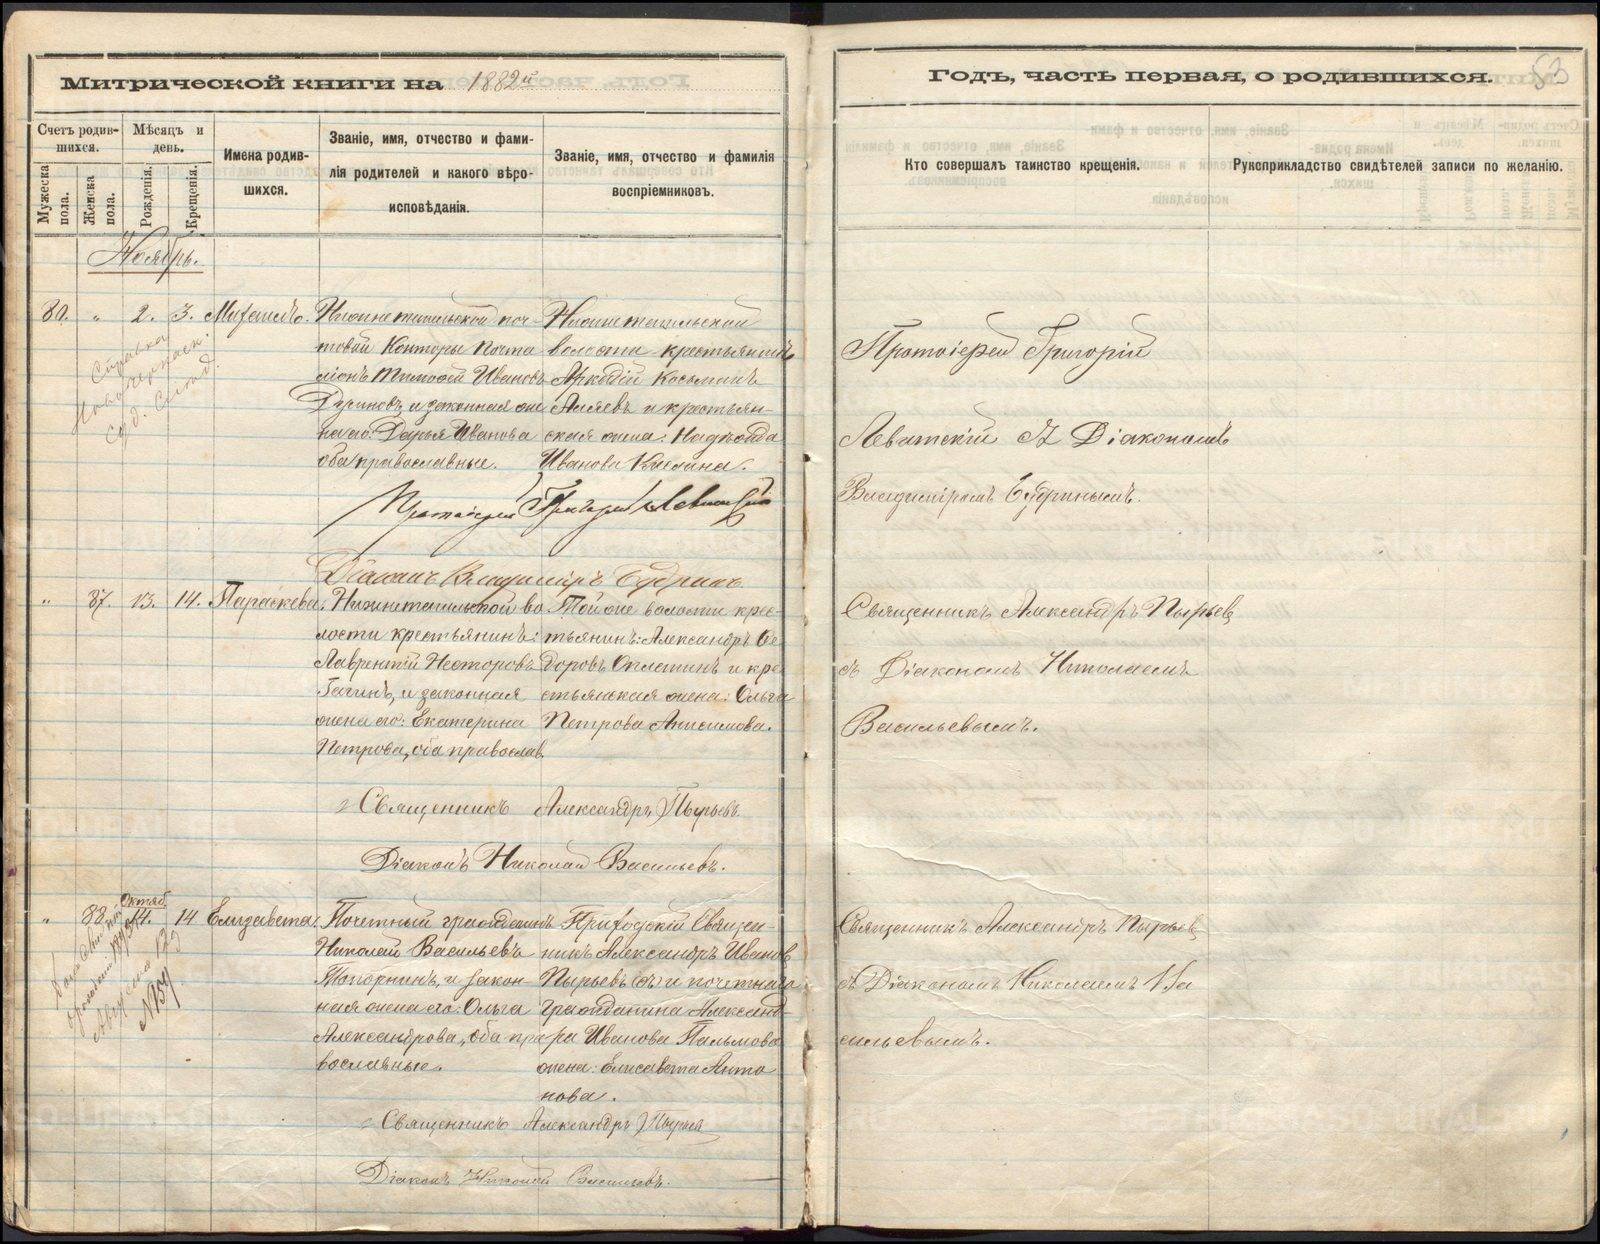 Митрической книги на 1882й
Годъ, часть первая, о родившихся.
53
Счетъ родив-
шихся.
Мѣсяцъ и
день.
Имена родив-
шихся.
Званіе, имя, отчество и фами-
лія родителей и какого вѣро-
исповѣданія.
Званіе, имя, отчество и фамилія
воспріемниковъ.
Мужеска
пола.
Женска
пола.
Рожденія.
Крещенія.
Кто совершалъ таинство крещенія.
Рукоприкладство свидѣтелей записи по желанію.
Ноябрь.
80. " 2. 3. Михаилъ.
Справка
Нижнетагильской поч-
товой Конторы Почта
ліонъ Тимофей Ивановъ
и законная же
на его: Дарья Иванова
оба православные.
Нижнетагильской
волости крестьянинъ
Аркадій Косьминъ
и крестьян-
ская жена: Надежда
Иванова
Протоіерей Григорій
Діаконъ Владиміръ Будринъ
Протоіерей Григорій
Левитскій съ Діакономъ
Владиміромъ Будринымъ.
" 87. 13. 14. Параскева.
Нижнетагильской во
лости крестьянинъ:
Лаврентій Несторовъ
и законная
жена его: Екатерина
Петрова, оба православ.
Той же волости крес-
тьянинъ: Александръ Ѳе
доровъ и кре
стьянская жена: Ольга
Петрова Анисимова.
Священникъ Александръ Пырьевъ
Діаконъ Николай Васильевъ.
Священникъ Александръ Пырьевъ
съ Діакономъ Николаемъ
Васильевымъ.
" 88. Октяб. 14. 14 Елизавета.
№ 157
Почетный гражданинъ
Николай Васильевъ
Топорнинъ, и закон
ная жена его: Ольга
Александрова, оба пра
вославные.
Приходскій Священ-
никъ Александръ Ивановъ
Пырьевъ и почетнаго
гражданина Александ-
ра Иванова Пальмова
жена: Елисавета Анто
нова.
Священникъ Александръ Пырьевъ
Діаконъ Николай Васильевъ.
Священникъ Александръ Пырьевъ
съ Діакономъ Николаемъ Ва
сильевымъ.